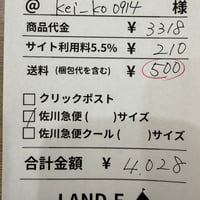 @ kei_ko0914 様
商品代金 ¥ 3318
サイト利用料5.5% ¥ 210
送料(梱包代を含む) ¥ 500
クリックポスト
佐川急便( )サイズ
佐川急便クール( )サイズ
合計金額 ¥ 4,028
LAND E